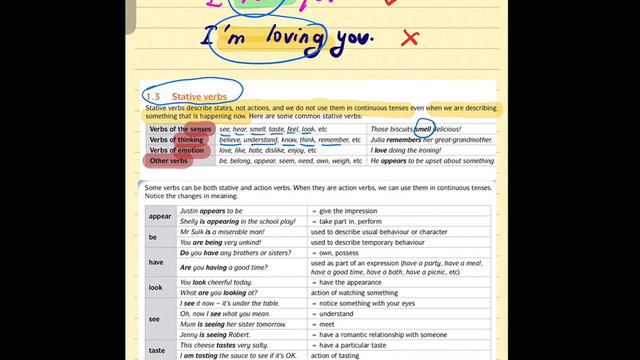 I
I'm loving you.
1.3 Stative verbs
Stative verbs describe states, not actions, and we do not use them in continuous tenses even when we are describing
something that is happening now. Here are some common stative verbs:
Verbs of the senses see, hear, smell, taste, feel, look, etc Those biscuits smell delicious!
Verbs of thinking believe, understand, know, think, remember, etc Julia remembers her great-grandmother.
Verbs of emotion love, like, hate, dislike, enjoy, etc I love doing the ironing!
Other verbs be, belong, appear, seem, need, own, weigh, etc He appears to be upset about something.
Some verbs can be both stative and action verbs. When they are action verbs, we can use them in continuous tenses.
Notice the changes in meaning.
appear Justin appears to be = give the impression
Shelly is appearing in the school play! = take part in, perform
be Mr Sulk is a miserable man! used to describe usual behaviour or character
You are being very unkind! used to describe temporary behaviour
have Do you have any brothers or sisters? = own, possess
Are you having a good time? used as part of an expression (have a party, have a meal,
have a good time, have a bath, have a picnic, etc)
look You look cheerful today. = have the appearance
What are you looking at? action of watching something
see I see it now – it's under the table. = notice something with your eyes
Oh, now I see what you mean. = understand
Mum is seeing her sister tomorrow. = meet
Jenny is seeing Robert. = have a romantic relationship with someone
taste This cheese tastes very salty. = have a particular taste
I am tasting the sauce to see if it's OK. action of tasting